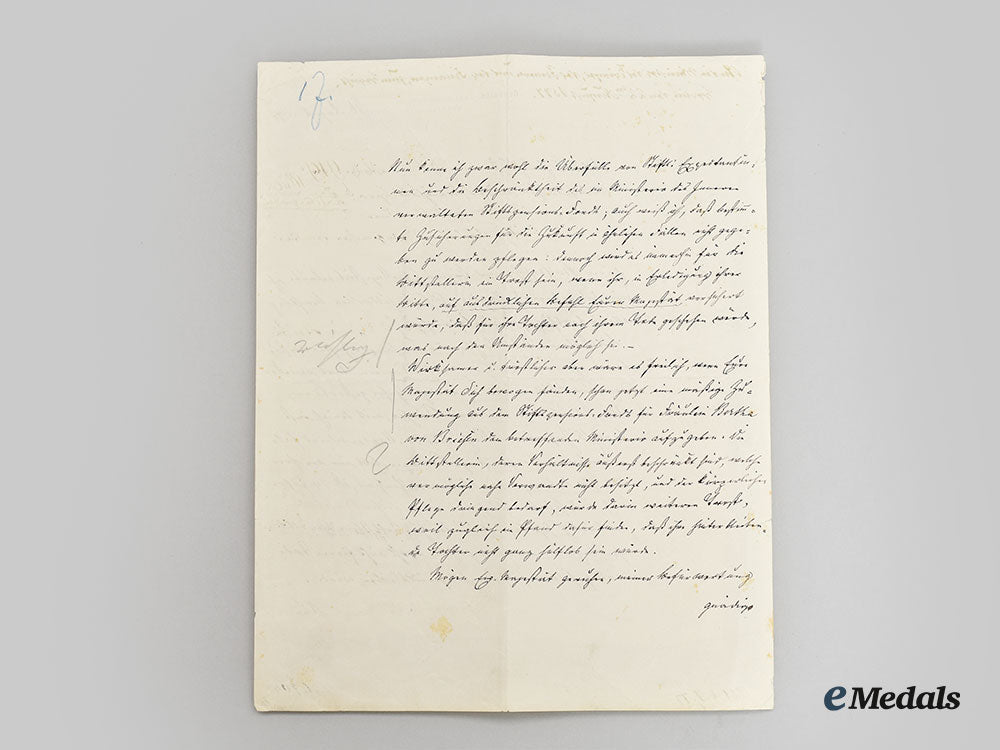 17.
Nun kenne ich zwar wohl die Überfülle von Stifts-Expectantin-
nen und die Beschränktheit des im Ministerio des Inneren
verwalteten Stiftspensions-Fonds; auch weiß ich, daß bestimm-
te Zusicherungen für die Zukunft in ähnlichen Fällen nicht gege-
ben zu werden pflegen: dennoch wird es immerhin für die
Bittstellerin ein Trost sein, wenn ihr, in Erledigung ihrer
Bitte, auf ausdrücklichen Befehl Eurer Majestät versichert
würde, daß für ihre Tochter nach ihrem Tode geschehen würde,
was nach den Umständen möglich sei. –
Wirksamer u. tröstlicher aber wäre es freilich, wenn Eure
Majestät Sich bewogen fänden, schon jetzt eine mäßige Zu-
wendung aus dem Stiftspensions-Fonds für Fräulein Bertha
von dem betreffenden Ministerio aufzugeben. Die
Bittstellerin, deren Verhältnisse äußerst beschränkt sind, welche
vermögliche nahe Verwandte nicht besitzt, und der körperlichen
Pflege dringend bedarf, würde darin weiteren Trost,
weil zugleich ein Pfand dafür finden, daß ihre hinterbleiben-
de Tochter nicht ganz hülflos sein würde.
Mögen Ew. Majestät geruhen, meine Befürwortung
gnädigst
eMedals